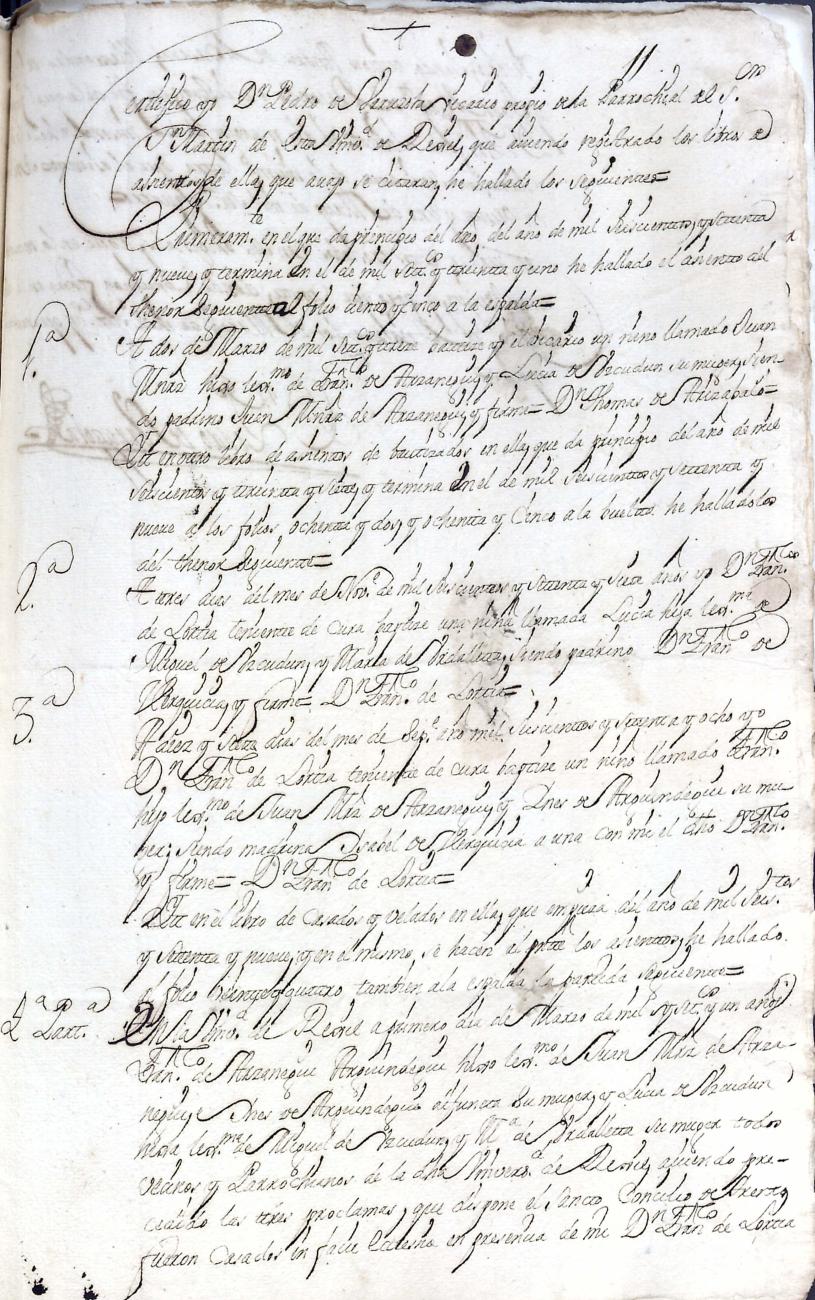 11
Certifico yo Dn Pedro de Verrasta vicario propio de la Parrochial del S.or
Sn Martin de esta Unios.d de Resil, que aviendo registrado los libros de
asientos de ella, que avajo se citaran, he hallado los siguientes=
Primeram.te en el que da principio del año, del año de mil seiscientos, y setenta
y nueve, y termina en el de mil Sett.os y treinta y uno he hallado el asiento del
thenor siguiente al folio ciento y cinco a la espalda=
1.a A dos de Marzo de mil Sett.os y trece bautize yo el Vicario un niño llamado Juan
Mrnz hijo legmo de Fran.co de Arzanegui, y Lucia de Vzcudun su muger, sien-
do padrino Juan Mrnz de Arzanegui, y firme= Dn Thomas de Arizabalo=
Itt en otro libro de asientos de bautizados en ella, que da principio del año de mil
seiscientos y treinta y siete, y termina en el de mil seiscientos y settenta y
nueve a los folios ochenta y dos, y ochenta y cinco a la buelta he hallado los
del thenor siguiente=
2.a A tres dias del mes de Nov.e de mil seiscientos y setenta y siete años yo Dn Fran.co
de Lortia teniente de cura baptize una niña llamada Lucia hija leg.ma de
Miguel de Vzcudun, y Maria de Vrdalleta, siendo padrino Dn Fran.co de
Verguicia, y firme= Dn Fran.co de Lortia=
3.a A diez y siete dias del mes de Sep.e año mil seiscientos y setenta y ocho yo
Dn Fran.co de Lortia teniente de cura baptize un niño llamado Fran.co
hijo legmo de Juan Mrnz de Arzanegui, y Ines de Arguindegui su mu-
ger; siendo madrina Isabel de Verguicia a una con mi el dho Dn Fran.co
y firme= Dn Fran.co de Lortia=
Itt en el libro de Casados y velados en ella, que empieza del año de mil seis.tos
y setenta y nueve, y en el mismo se hacen al pntte los asientos, he hallado
al folio veinte y quattro tambien a la espalda la partida siguiente=
4.a Part.a En la Unios.d de Resil a primero dia de Marzo de mil y Set.os y un años
Fran.co de Arzanegui Arguindegui hijo leg.mo de Juan Mrnz de Arza-
negui, e Ines de Arguindegui difuncta su muger, y Lucia de Vzcudun
hija leg.ma de Miguel de Vzcudun, y M.a de Vrdalleta su muger todos
vecinos y Parrochianos de la dha Univers.d de Resil, aviendo pre-
cedido las tres proclamas, que dispone el Sancto Concilio de Trento,
fueron casados in facie Eclesiae en presencia de mi Dn Fran.co de Lortia